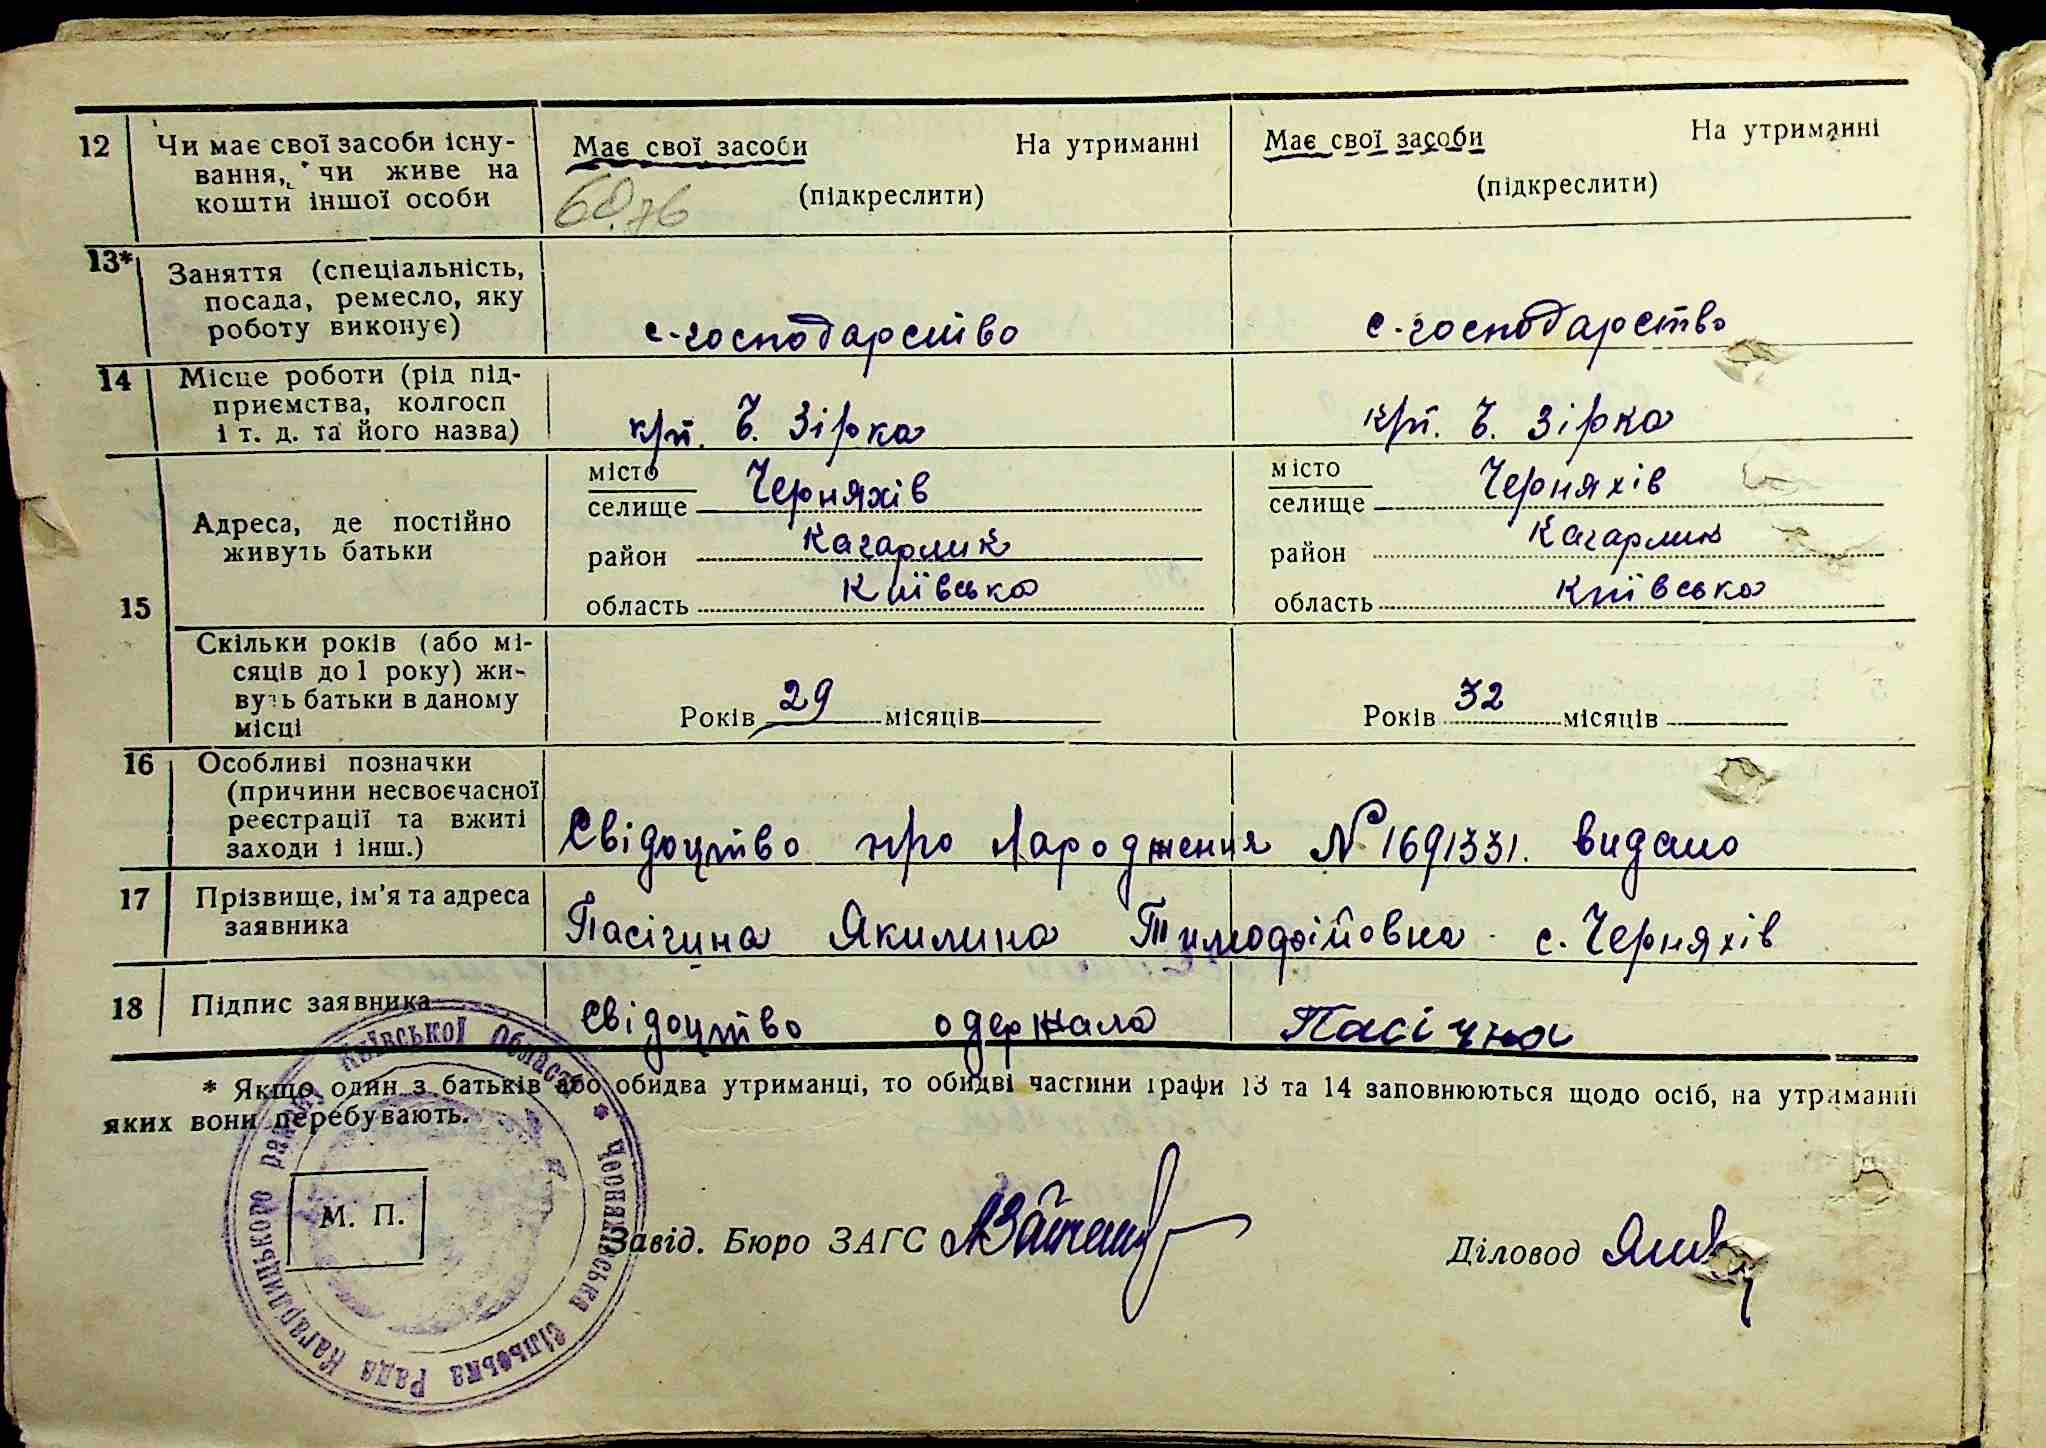 12 Чи має свої засоби існу- Має свої засоби На утриманні Має свої засоби На утриманні
вання, чи живе на (підкреслити) (підкреслити)
кошти іншої особи 60.76
13* Заняття (спеціальність,
посада, ремесло, яку
роботу виконує) с-господарство с-господарство
14 Місце роботи (рід під-
приємства, колгосп
і т. д. та його назва) крп. Ч. Зірка крп. Ч. Зірка
15 Адреса, де постійно
живуть батьки
місто
селище Черняхів
район Кагарлик
область Київська
місто
селище Черняхів
район Кагарлик
область Київська
Скільки років (або мі-
сяців до 1 року) жи-
вуть батьки в даному
місці
Років 29 місяців Років 32 місяців
16 Особливі позначки
(причини несвоєчасної
реєстрації та вжиті
заходи і інш.)
Свідоцтво про народження № 1691331. видано
17 Прізвище, ім'я та адреса
заявника
Пасічна Якилина Тимофійовна с. Черняхів
18 Підпис заявника Свідоцтво одержала Пасічна
* Якщо один з батьків або обидва утриманці, то обидві частини графи 13 та 14 заповнюються щодо осіб, на утриманні
яких вони перебувають.
М. П.
Завід. Бюро ЗАГС
Діловод
Черняхівська Сільська Рада Кагарлицького району Київської Області *